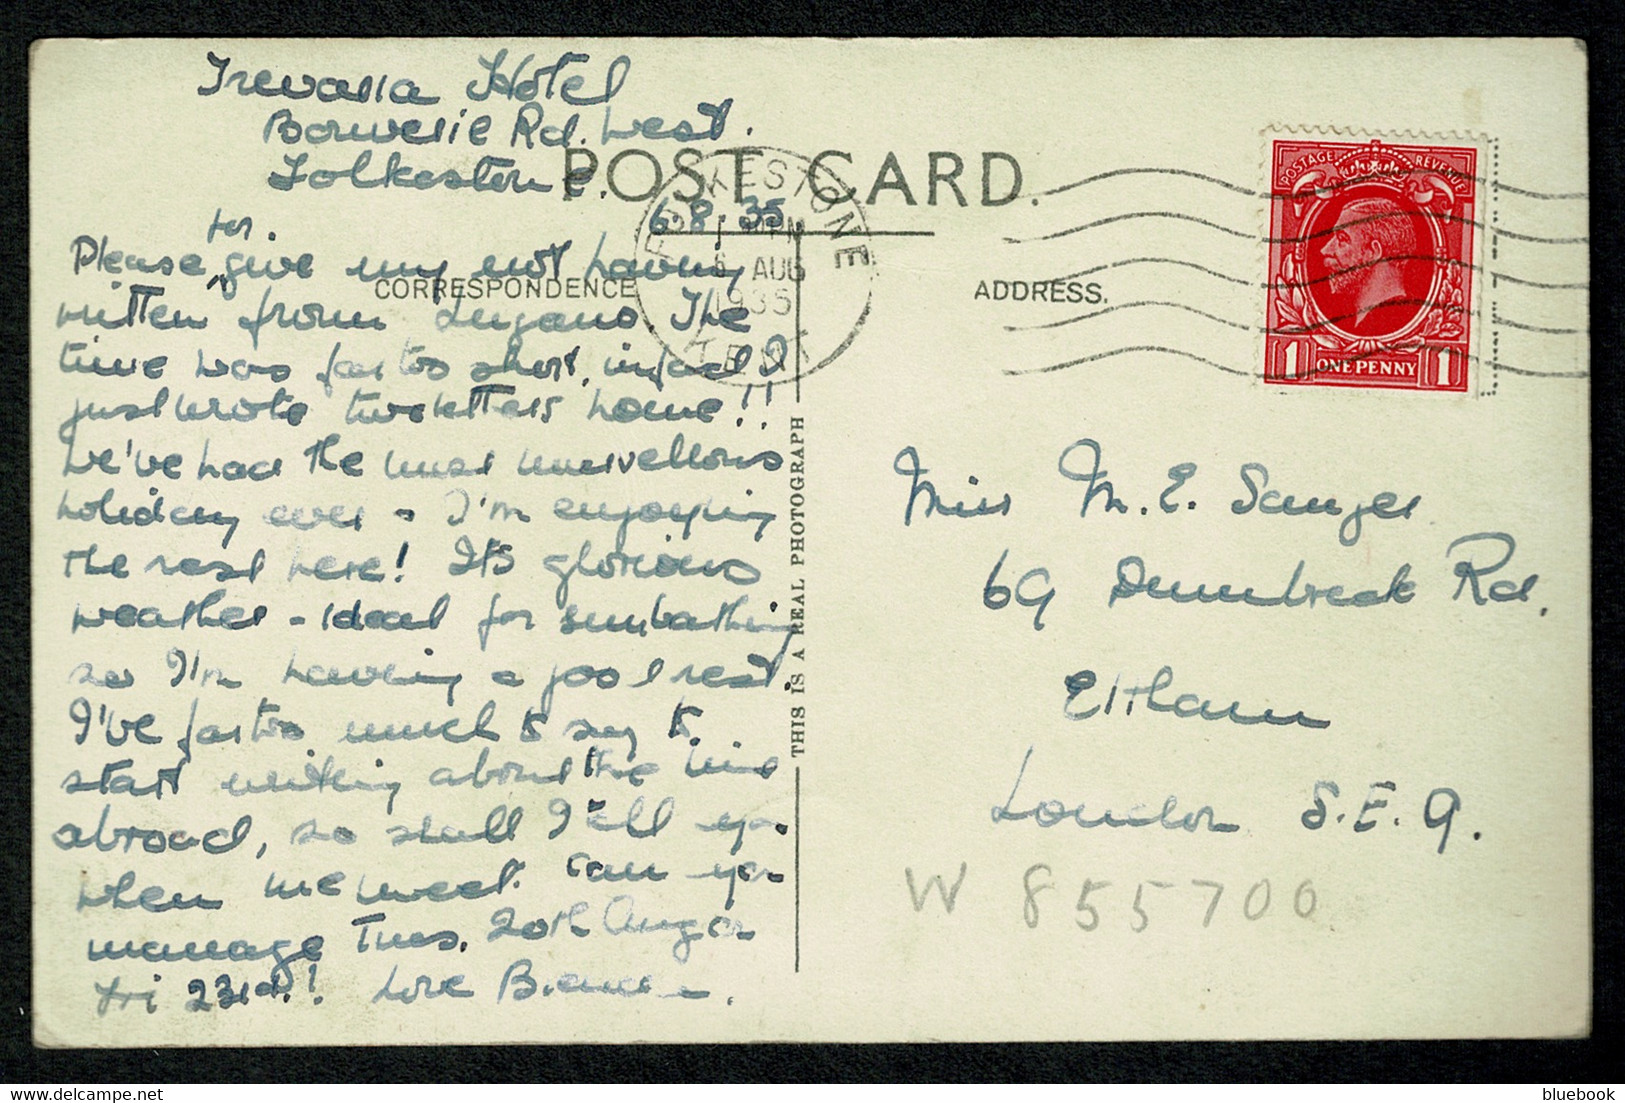 Hotel
Bouverie Rd. West.
Folkestone.
POST CARD.
6.8.35
FOLKESTONE
PM
6 AUG
1935
KENT
POSTAGE REVENUE
1 ONE PENNY 1
CORRESPONDENCE
ADDRESS.
for
Please ^ give my not having
written from Lugano The
time was far too short, in fact I
just wrote two letters home!!
We've had the most marvellous
holiday ever - I'm enjoying
the rest here! It's glorious
weather - ideal for sunbathing
so I'm having a good rest.
I've far too much to say to
start writing about the time
abroad, so shall tell you
when we meet. Can you
manage Tues. 20th Aug or
Fri 23rd.! Love
THIS IS A REAL PHOTOGRAPH
Miss M. E. Sanger
69 Dumbreck Rd.
Eltham
London S.E.9.
W 855700
bluebook